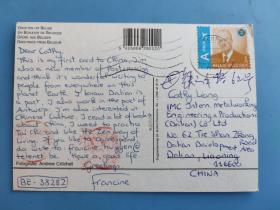 Groeten uit België
Un bonjour de Belgique
Grüße aus Belgien
Greetings from Belgium
Dear Cathy,
This is my first card to China, I'm
also a new member of
and think it's wonderful writing to
people from everywhere on this
planet Earth. I know Dalian is
a port. I also work in the port of
Antwerp. I'm also interested in
Chinese Culture. I read a lot of books
about China, I used to practice
Tai chi and like the Zen way of
living. If you like the
we are on
telenet.be. Have a good life
Greetings
Francine
BE-38282
Fotografie: Andrew Critchell
A PRIOR
Cathy Wang
IMC Intem metalworking
Engineering Production
(Dalian) Co Ltd
No. 62 Tie Shan Zhong Road
Dalian Development Area
Dalian, Liaoning
116600
CHINA